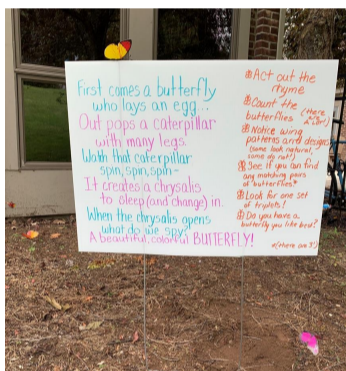 First comes a butterfly
who lays an egg...
Out pops a caterpillar
with many legs.
Watch that caterpillar
spin, spin, spin -
It creates a chrysalis
to sleep (and change) in.
When the chrysalis opens
what do we spy?
A beautiful, colorful BUTTERFLY!
Act out the
rhyme
Count the
butterflies (there
a lot!)
Notice wing
patterns and designs
(some look natural,
some do not!)
See if you can find
any matching pairs
of butterflies*
Look for one set
of triplets!
Do you have a
butterfly you like best?
*(there are 3!)